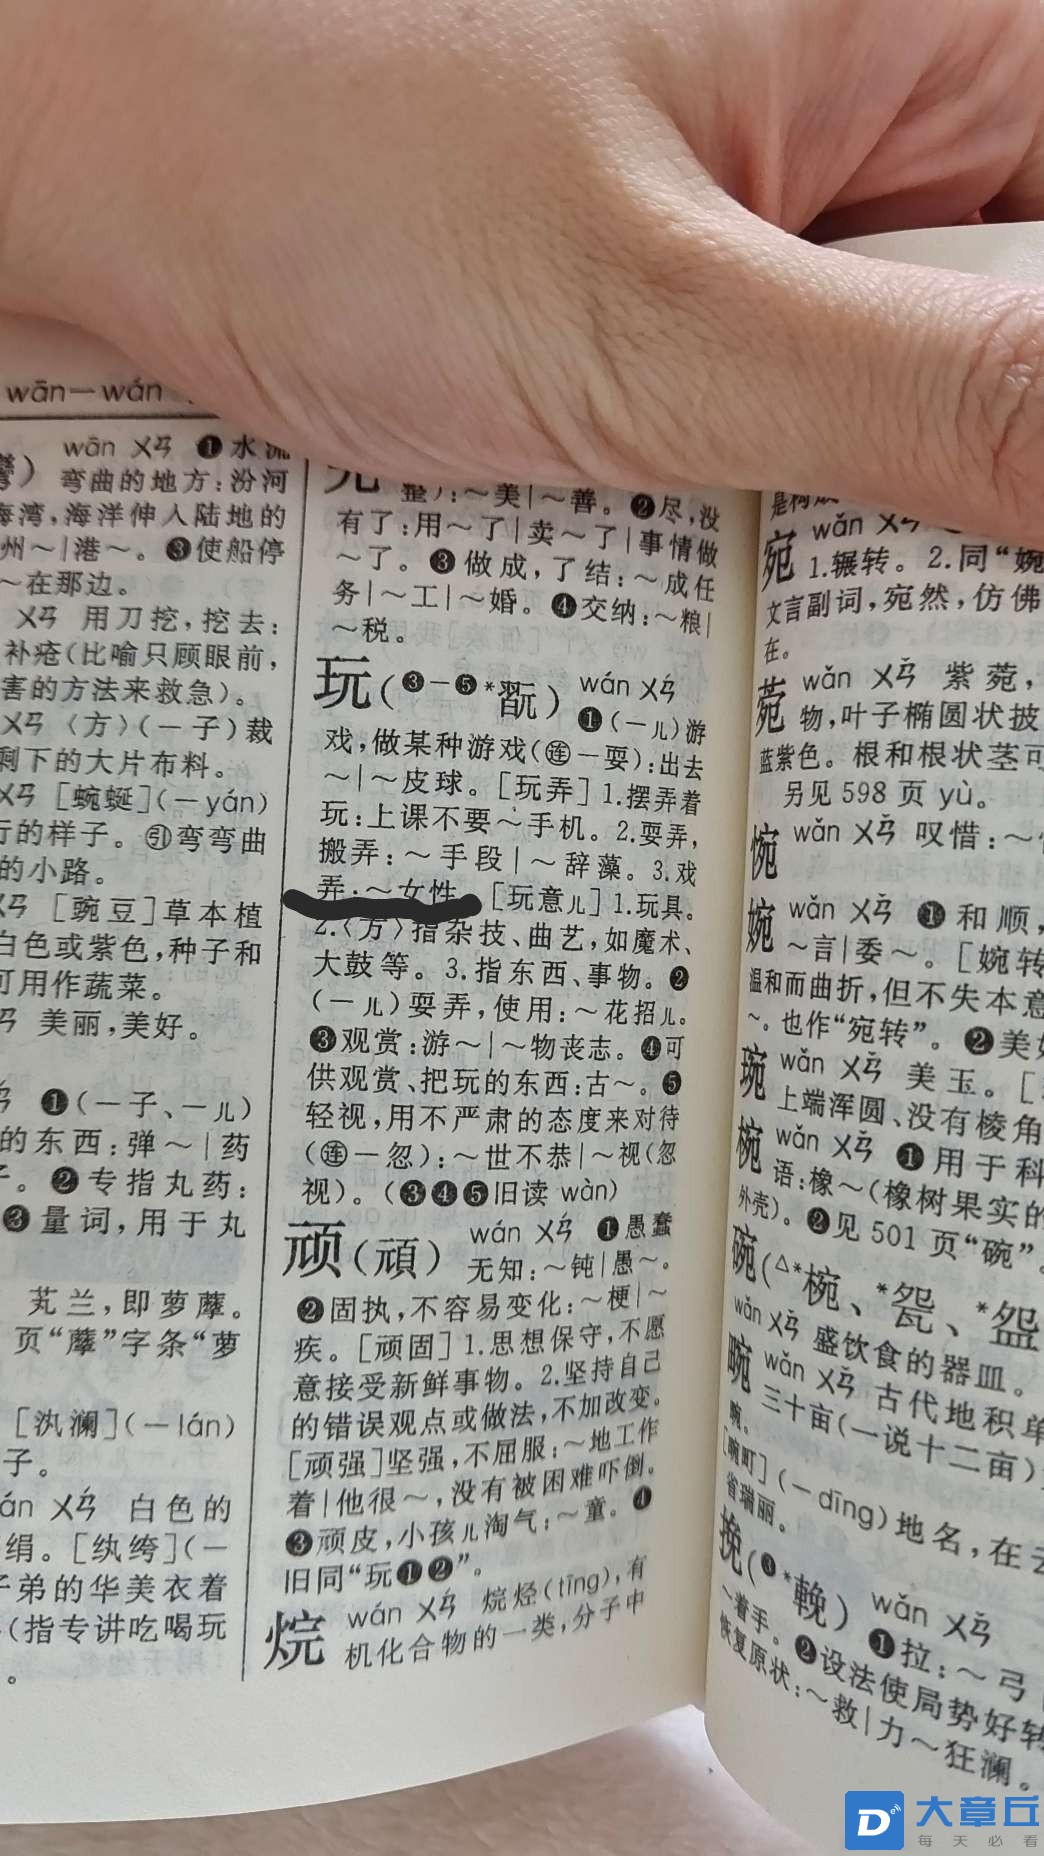 wān－wán
wān ㄨㄢ ❶水流
弯曲的地方：汾河
海湾，海洋伸入陆地的
州～|港～。❸使船停
～在那边。
ㄨㄢ 用刀挖，挖去：
补疮（比喻只顾眼前，
害的方法来救急）。
ㄨㄢ〈方〉（－子）裁
剩下的大片布料。
ㄨㄢ [蜿蜒]（－yán）
行的样子。㊞弯弯曲
的小路。
ㄨㄢ [豌豆]草本植
白色或紫色，种子和
可用作蔬菜。
ㄢ 美丽，美好。
❶（－子、－儿）
的东西：弹～|药
。❷专指丸药：
❸量词，用于丸
芄兰，即萝藦。
页“藦”字条“萝
[汍澜]（－lán）
子。
án ㄨㄢˊ 白色的
绢。[纨绔]（－
子弟的华美衣着
（指专讲吃喝玩
。
完
整）：～美|～善。❷尽，没
有了：用～了|卖～了|事情做
～了。❸做成，了结：～成任
务|～工|～婚。❹交纳：～粮|
～税。
玩（❸－❺*翫） wán ㄨㄢˊ
❶（－儿）游
戏，做某种游戏（㊀－耍）：出去
～|～皮球。[玩弄] 1.摆弄着
玩：上课不要～手机。2.耍弄，
搬弄：～手段|～辞藻。3.戏
弄：～女性 [玩意儿] 1.玩具。
2.〈方〉指杂技、曲艺，如魔术、
大鼓等。3.指东西、事物。❷
（－儿）耍弄，使用：～花招儿。
❸观赏：游～|～物丧志。❹可
供观赏、把玩的东西：古～。❺
轻视，用不严肃的态度来对待
（连－忽）：～世不恭|～视（忽
视）。（❸❹❺旧读 wàn）
顽（頑） wán ㄨㄢˊ ❶愚蠢
无知：～钝|愚～。
❷固执，不容易变化：～梗|～
疾。[顽固] 1.思想保守，不愿
意接受新鲜事物。2.坚持自己
的错误观点或做法，不加改变。
[顽强]坚强，不屈服：～地工作
着|他很～，没有被困难吓倒。
❸顽皮，小孩儿淘气：～童。❹
旧同“玩❶❷”。
烷 wán ㄨㄢˊ 烷烃（tīng），有
机化合物的一类，分子中
是构成
宛 wǎn ㄨㄢˇ
1.辗转。2.同“婉
文言副词，宛然，仿佛
在。
菀 wǎn ㄨㄢˇ 紫菀，
物，叶子椭圆状披
蓝紫色。根和根状茎可
另见 598 页 yù。
惋 wǎn ㄨㄢˇ 叹惜：～
婉 wǎn ㄨㄢˇ ❶和顺，
～言|委～。[婉转
温和而曲折，但不失本意
～。也作“宛转”。❷美好
琬 wǎn ㄨㄢˇ 美玉。[
上端浑圆、没有棱角
椀 wǎn ㄨㄢˇ ❶用于科
语：橡～（橡树果实的
外壳）。❷见 501 页“碗”。
碗（△*椀、*㼝、*盌
wǎn ㄨㄢˇ 盛饮食的器皿。
畹 wǎn ㄨㄢˇ 古代地积单
三十亩（一说十二亩）
畹。
[畹町]（－dīng）地名，在云
省瑞丽。
挽（❸*輓） wǎn ㄨㄢˇ
❶拉：～弓
～着手。❷设法使局势好转
恢复原状：～救|力～狂澜。
大章丘
每天必看